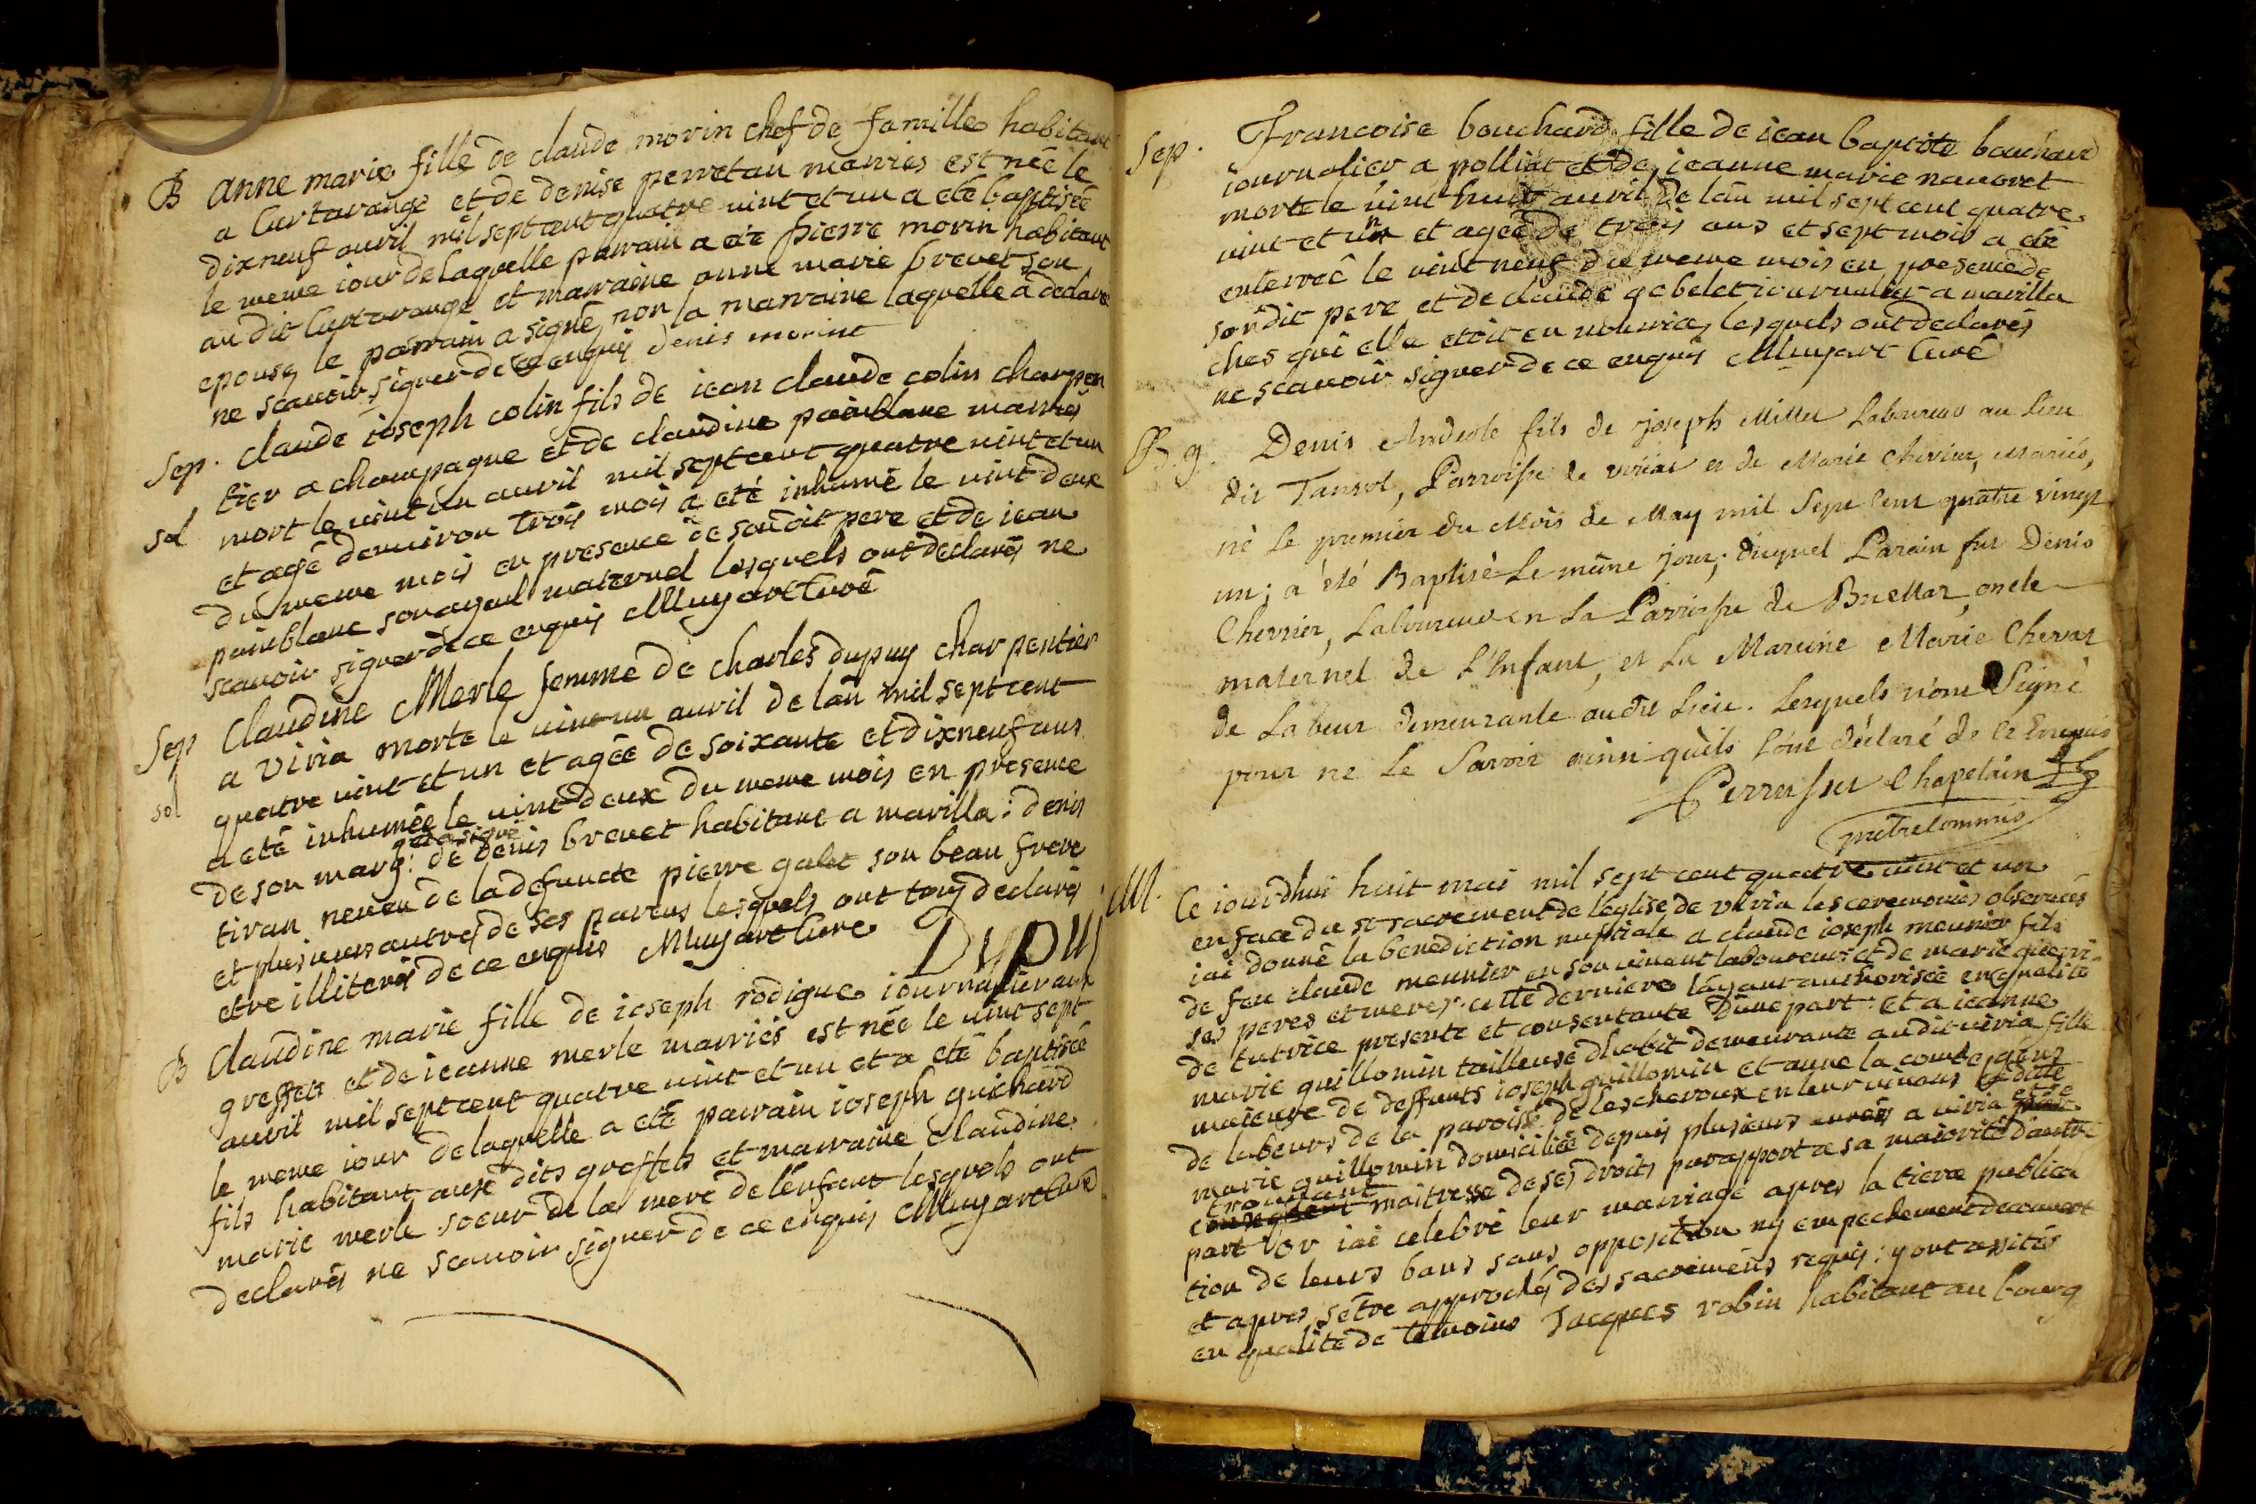 B anne marie fille de claude morin chef de famille habitant
a Curtarange et de denise perretan marries est née le
dixneuf auril mil sept cent quatre uint et un a eté baptisée
le meme iour de laquelle parrain a eté pierre morin habitant
au dit Curtarange et marraine anne marie brevet son
epouse, le parrain a signé non la marraine laquelle a declaré
ne scauoir signer de ce enquis denis morine
Sep. claude ioseph colin fils de iean claude colin charpen
tier a champagne et de claudine painblanc marriés
sol mort le uint un auril mil sept cent quatre uint et un
et agé denuiron trois mois a eté inhumé le uint deux
du meme mois en presence de son dit pere et de iean
painblanc son ayeul maternel lesquels ont declarés ne
scauoir signer de ce enquis Muyart Curé
Sep Claudine Merle femme de Charles dupuy charpentier
a viria morte le uint un auril de lan mil sept cent
sol quatre uint et un et agée de soixante et dixneuf ans
a eté inhumée le uint deux du meme mois en presence
qui a signé
de son mary: de denis brevet habitant a marilla: denis
tiran neveu de la defuncte pierre galet son beau frere
et plusieurs autres de ses parens lesquels ont tous declarés
etre illiterés de ce enquis Muyart Cure DUPUIJ
B Claudine marie fille de ioseph rodigue iournalier aux
greffets et de ieanne merle marriés est née le uint sept
auril mil sept cent quatre uint et un et a eté baptisée
le meme iour de laquelle a eté parrain ioseph guichard
fils habitant aux dits greffets et marraine Claudine
marie merle soeur de la mere de lenfant lesquels ont
declarés ne scauoir signer de ce enquis Muyart Curé
Sep. Francoise bouchard fille de iean baptiste bouchard
iournalier a polliat et de ieanne marie nauoret
morte le uint huit auril de lan mil sept cent quatre
uint et un et agée de trois ans et sept mois a eté
enterrée le uint neuf du meme mois en presence de
son dit pere et de claude gobelet iournalier a marilla
ches qui elle etoit en nourrice, lesquels ont declarés
ne scauoir signer de ce enquis Muyart Curé
B. g. Denis Andeole fils de joseph Millet Laboureur au Lieu
dit Tansol, Parroisse de viriat et de Marie Chevrier, mariés,
né Le premier du Mois de May mil Sept Cent quatre vingt
un; a été Baptisé Le même jour; duquel Parain fut Denis
Chevrier, Laboureur en La Parroisse de Buellas, oncle
maternel de L'Enfant, et La Maraine Marie Chevat
de Labeur demeurante au dit Lieu. Lesquels n'ont Signé
pour ne Le Savoir ainsi qu'ils L'ont déclaré de Ce Enquis
Perrusset Chapelain
prêtre Commis
M. Ce iourdhui huit mai mil sept cent quatre uint et un
en face du st sacrement de leglise de viria les ceremonies obseruées
iai donné la benediction nuptiale a claude ioseph meunier fils
de feu claude meunier en son uiuant laboureur et de marie guerri-
ses peres et meres: cette derniere layant authorisée en qualité
de tutrice presente et consentante dune part: et a ieanne
marie guillomin tailleuse dhabit demeurante au dit viria fille
maieure de deffunts ioseph guillomin et anne la comte gens
de labeurs de la paroisse de lescheroux en leur uiuans la ditte
marie guillomin domiciliée depuis plusieurs années a viria et se
trouuant
consequent maitresse de ses droits par rapport a sa maiorité dautre
part Or iai celebré leur marriage apres la tierce publica
tion de leurs bans sans opposition ny empechement decouvert
et apres setre approchés des sacremens requis: y ont assistés
en qualité de temoins Jacques robin habitant au bourg